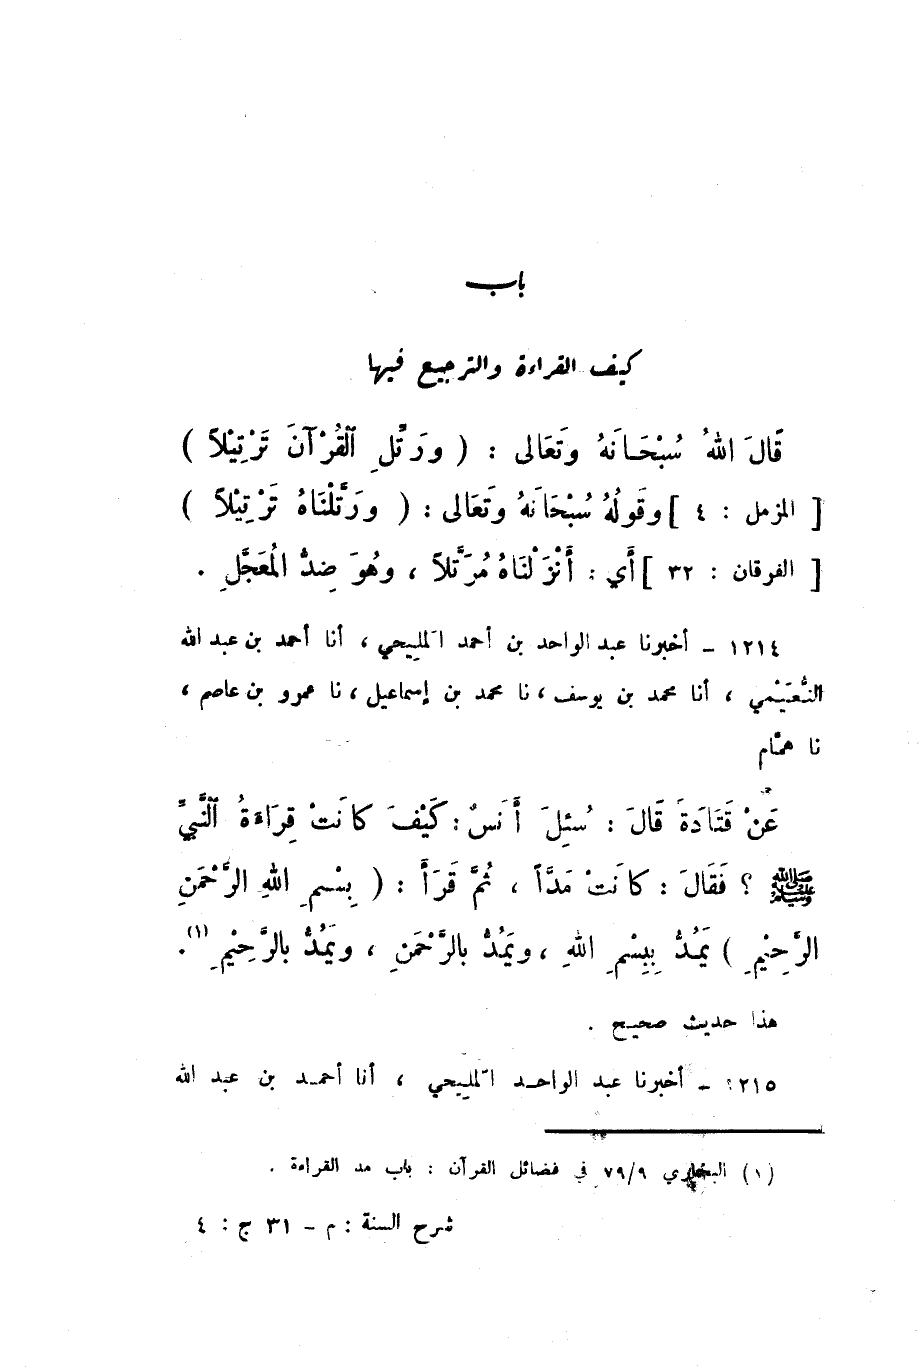 باب
كيف القراءة والترجيع فيها
قَالَ اللهُ سُبْحَانَهُ وَتَعَالى : ( وَرَتِّلِ الْقُرْآنَ تَرْتِيْلاً )
[ المزمل : ٤ ] وقَولُهُ سُبْحَانَهُ وَتَعَالى : ( وَرَتَّلْنَاهُ تَرْتِيْلاً )
[ الفرقان : ٣٢ ] أَي : أَنْزَلْنَاهُ مُرَتَّلاً ، وهُوَ ضِدُّ المُعَجَّلِ .
١٢١٤ – أخبرنا عبد الواحد بن أحمد المَلِيحي ، أنا أحمد بن عبد الله
النُّعَيْمي ، أنا محمد بن يوسف ، نا محمد بن إسماعيل ، نا عمرو بن عاصم ،
نا همَّام
عَنْ قَتَادَةَ قَالَ : سُئِلَ أَنَسٌ : كَيْفَ كَانَتْ قِرَاءَةُ النَّبيِّ
ﷺ ؟ فَقَالَ : كَانَتْ مَدَّاً ، ثُمَّ قَرَأَ : ( بِسْمِ اللهِ الرَّحْمَنِ
الرَّحِيْمِ ) يَمُدُّ بِبِسْمِ اللهِ ، ويَمُدُّ بالرَّحْمَنِ ، ويَمُدُّ بالرَّحِيْمِ (١) .
هذا حديث صحيح .
١٢١٥ – أخبرنا عبد الواحد المَلِيحي ، أنا أحمد بن عبد الله
(١) البخاري ٧٩/٩ في فضائل القرآن : باب مد القراءة .
شرح السنة : م – ٣١ ج : ٤